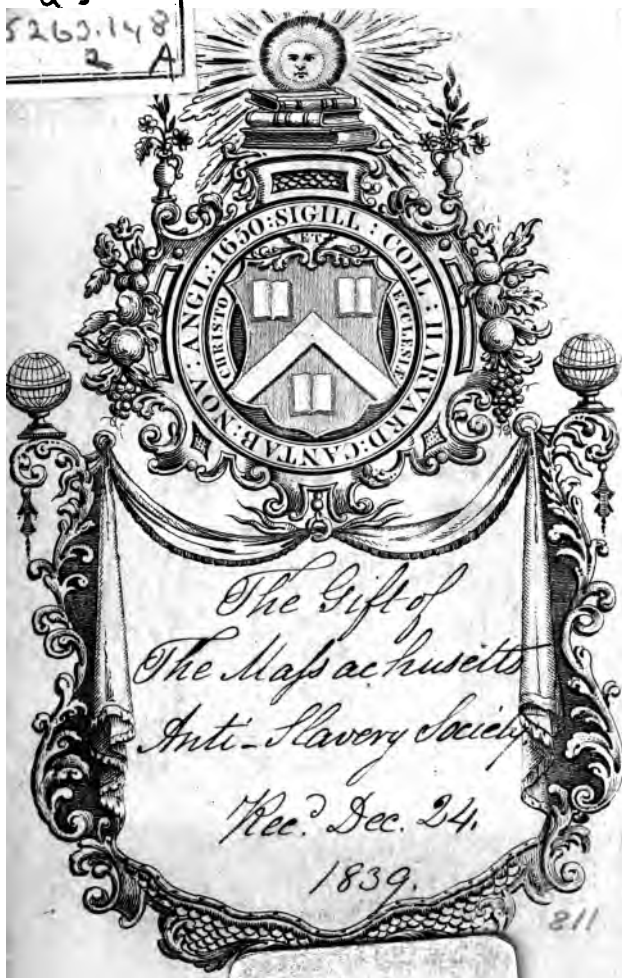 5263.148
2 A
SIGILL : COLL : HARVARD : CANTAB : NOV : ANGL : 1650 :
CHRISTO ET ECCLESIÆ
The Gift of
The Maſsachusetts
Anti-Slavery Society
Rec.d Dec. 24.
1839.
811